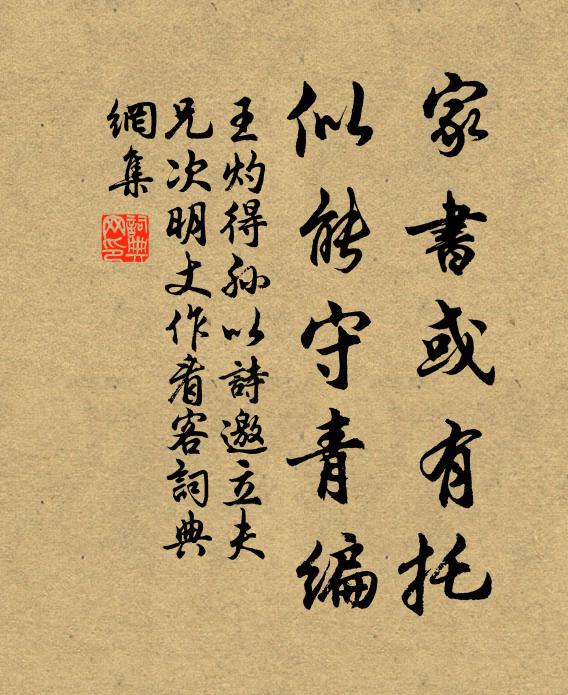 家書或有托
似能守青编
王灼得孙以詩邀立夫
兄次明丈作肴客詞典
網集
詞典網印